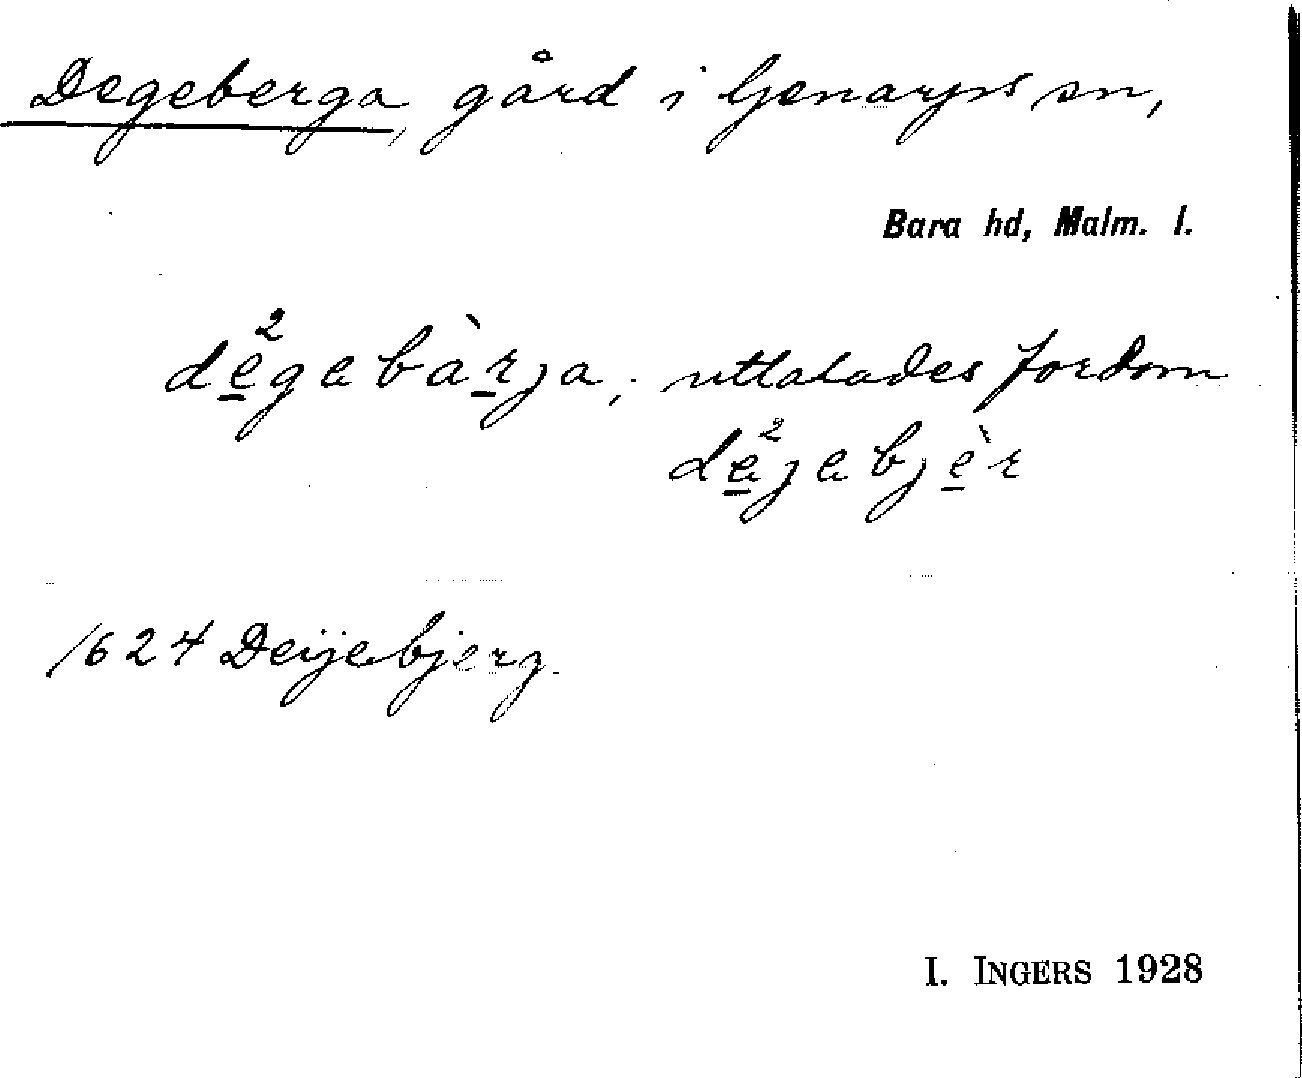 Degeberga, gård i Genarps sn,
Bara hd, Malm. l.
dḛ²gebàrja, uttalades fordom
dḛ²jebjèr
1624 Deijebjerg.
I. INGERS 1928